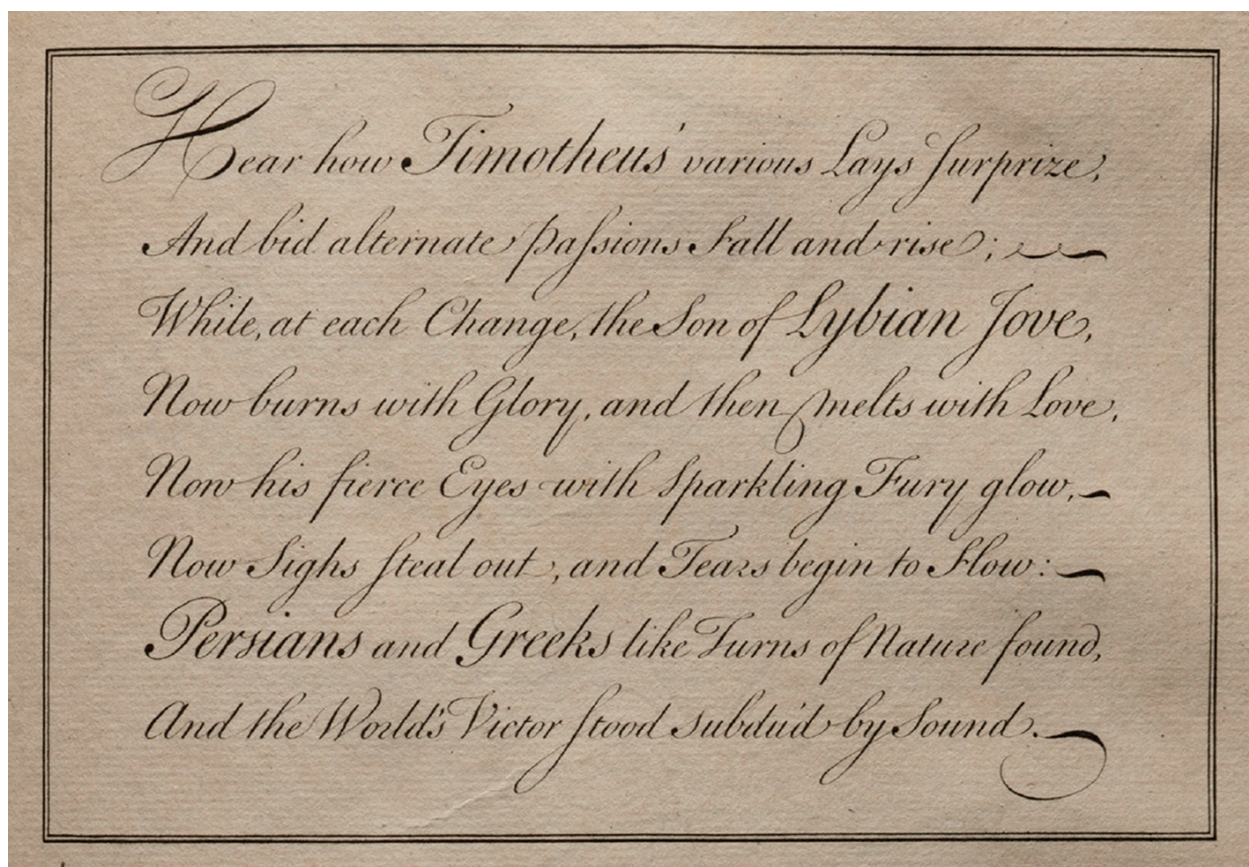 Hear how Timotheus' various Lays surprize,
And bid alternate passions fall and rise;
While, at each Change, the Son of Lybian Jove,
Now burns with Glory, and then melts with Love,
Now his fierce Eyes with sparkling Fury glow,
Now Sighs steal out, and Tears begin to flow:
Persians and Greeks like Turns of Nature found,
And the World's Victor stood subdu'd by Sound.